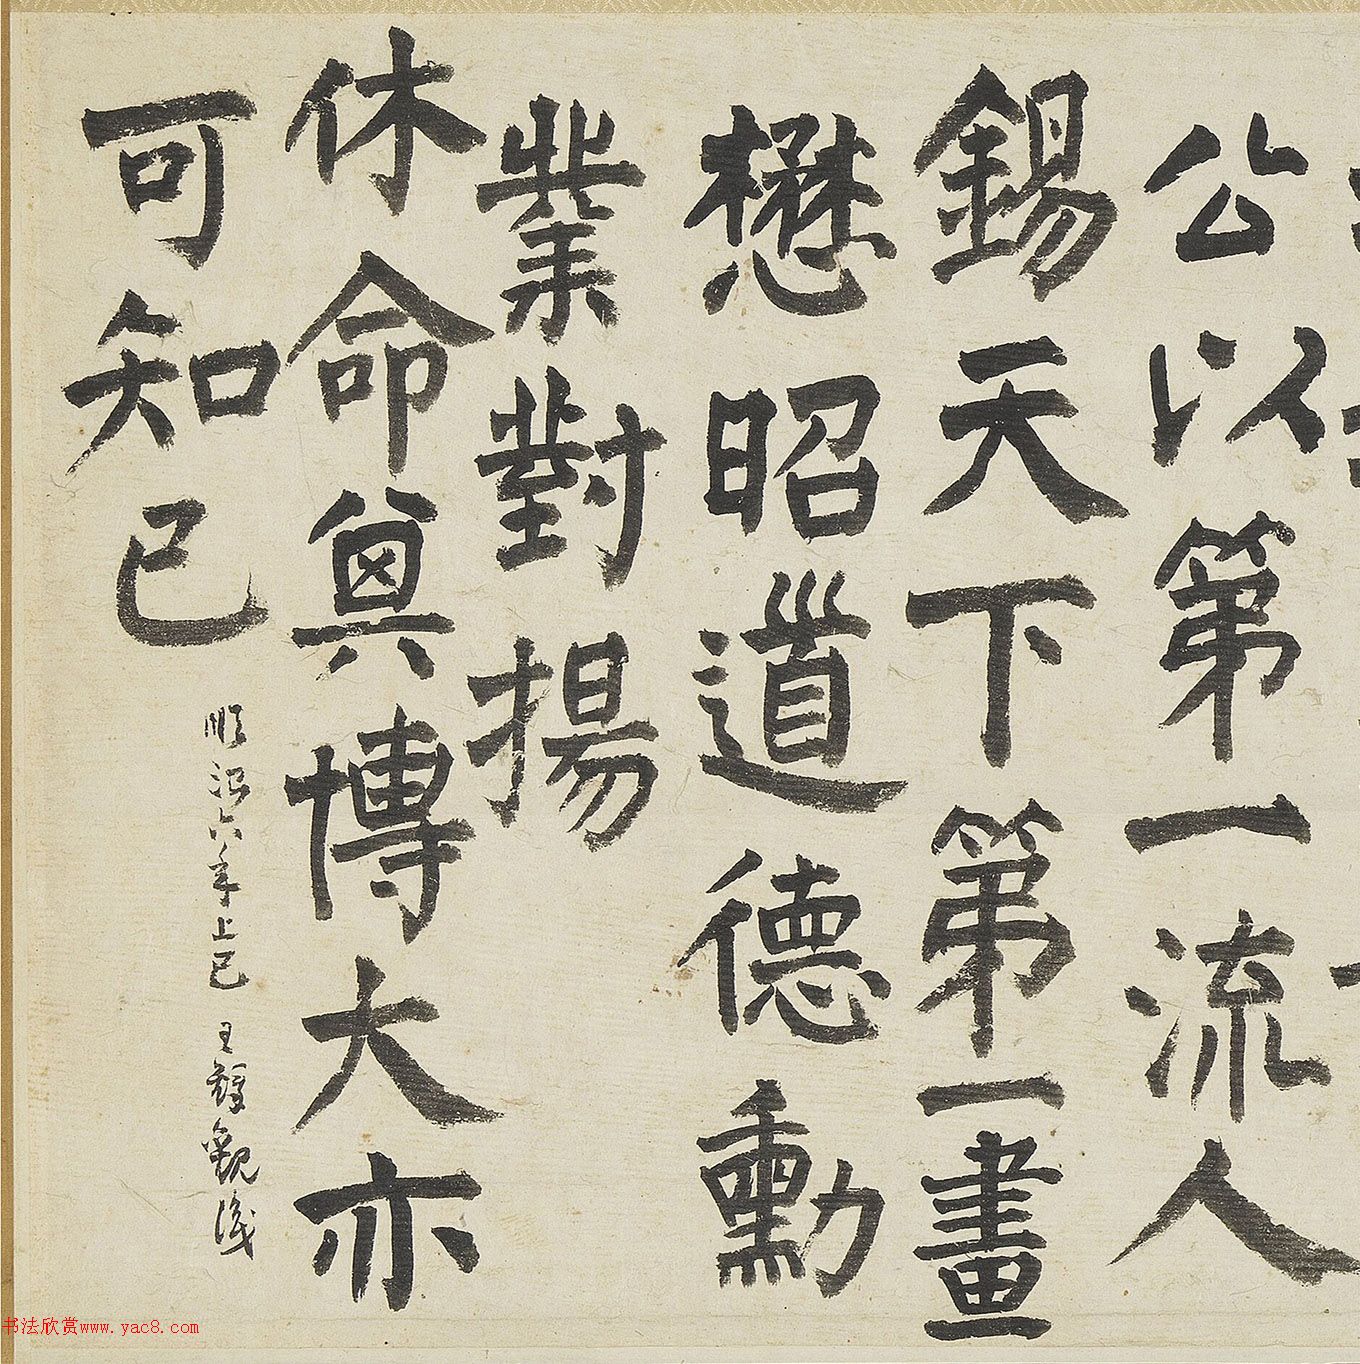 公以第一流人
錫天下第一畫
懋昭道德勳
業對揚
休命其博大亦
可知已
順治六年上巳 王鐸觀識
书法欣赏www.yac8.com